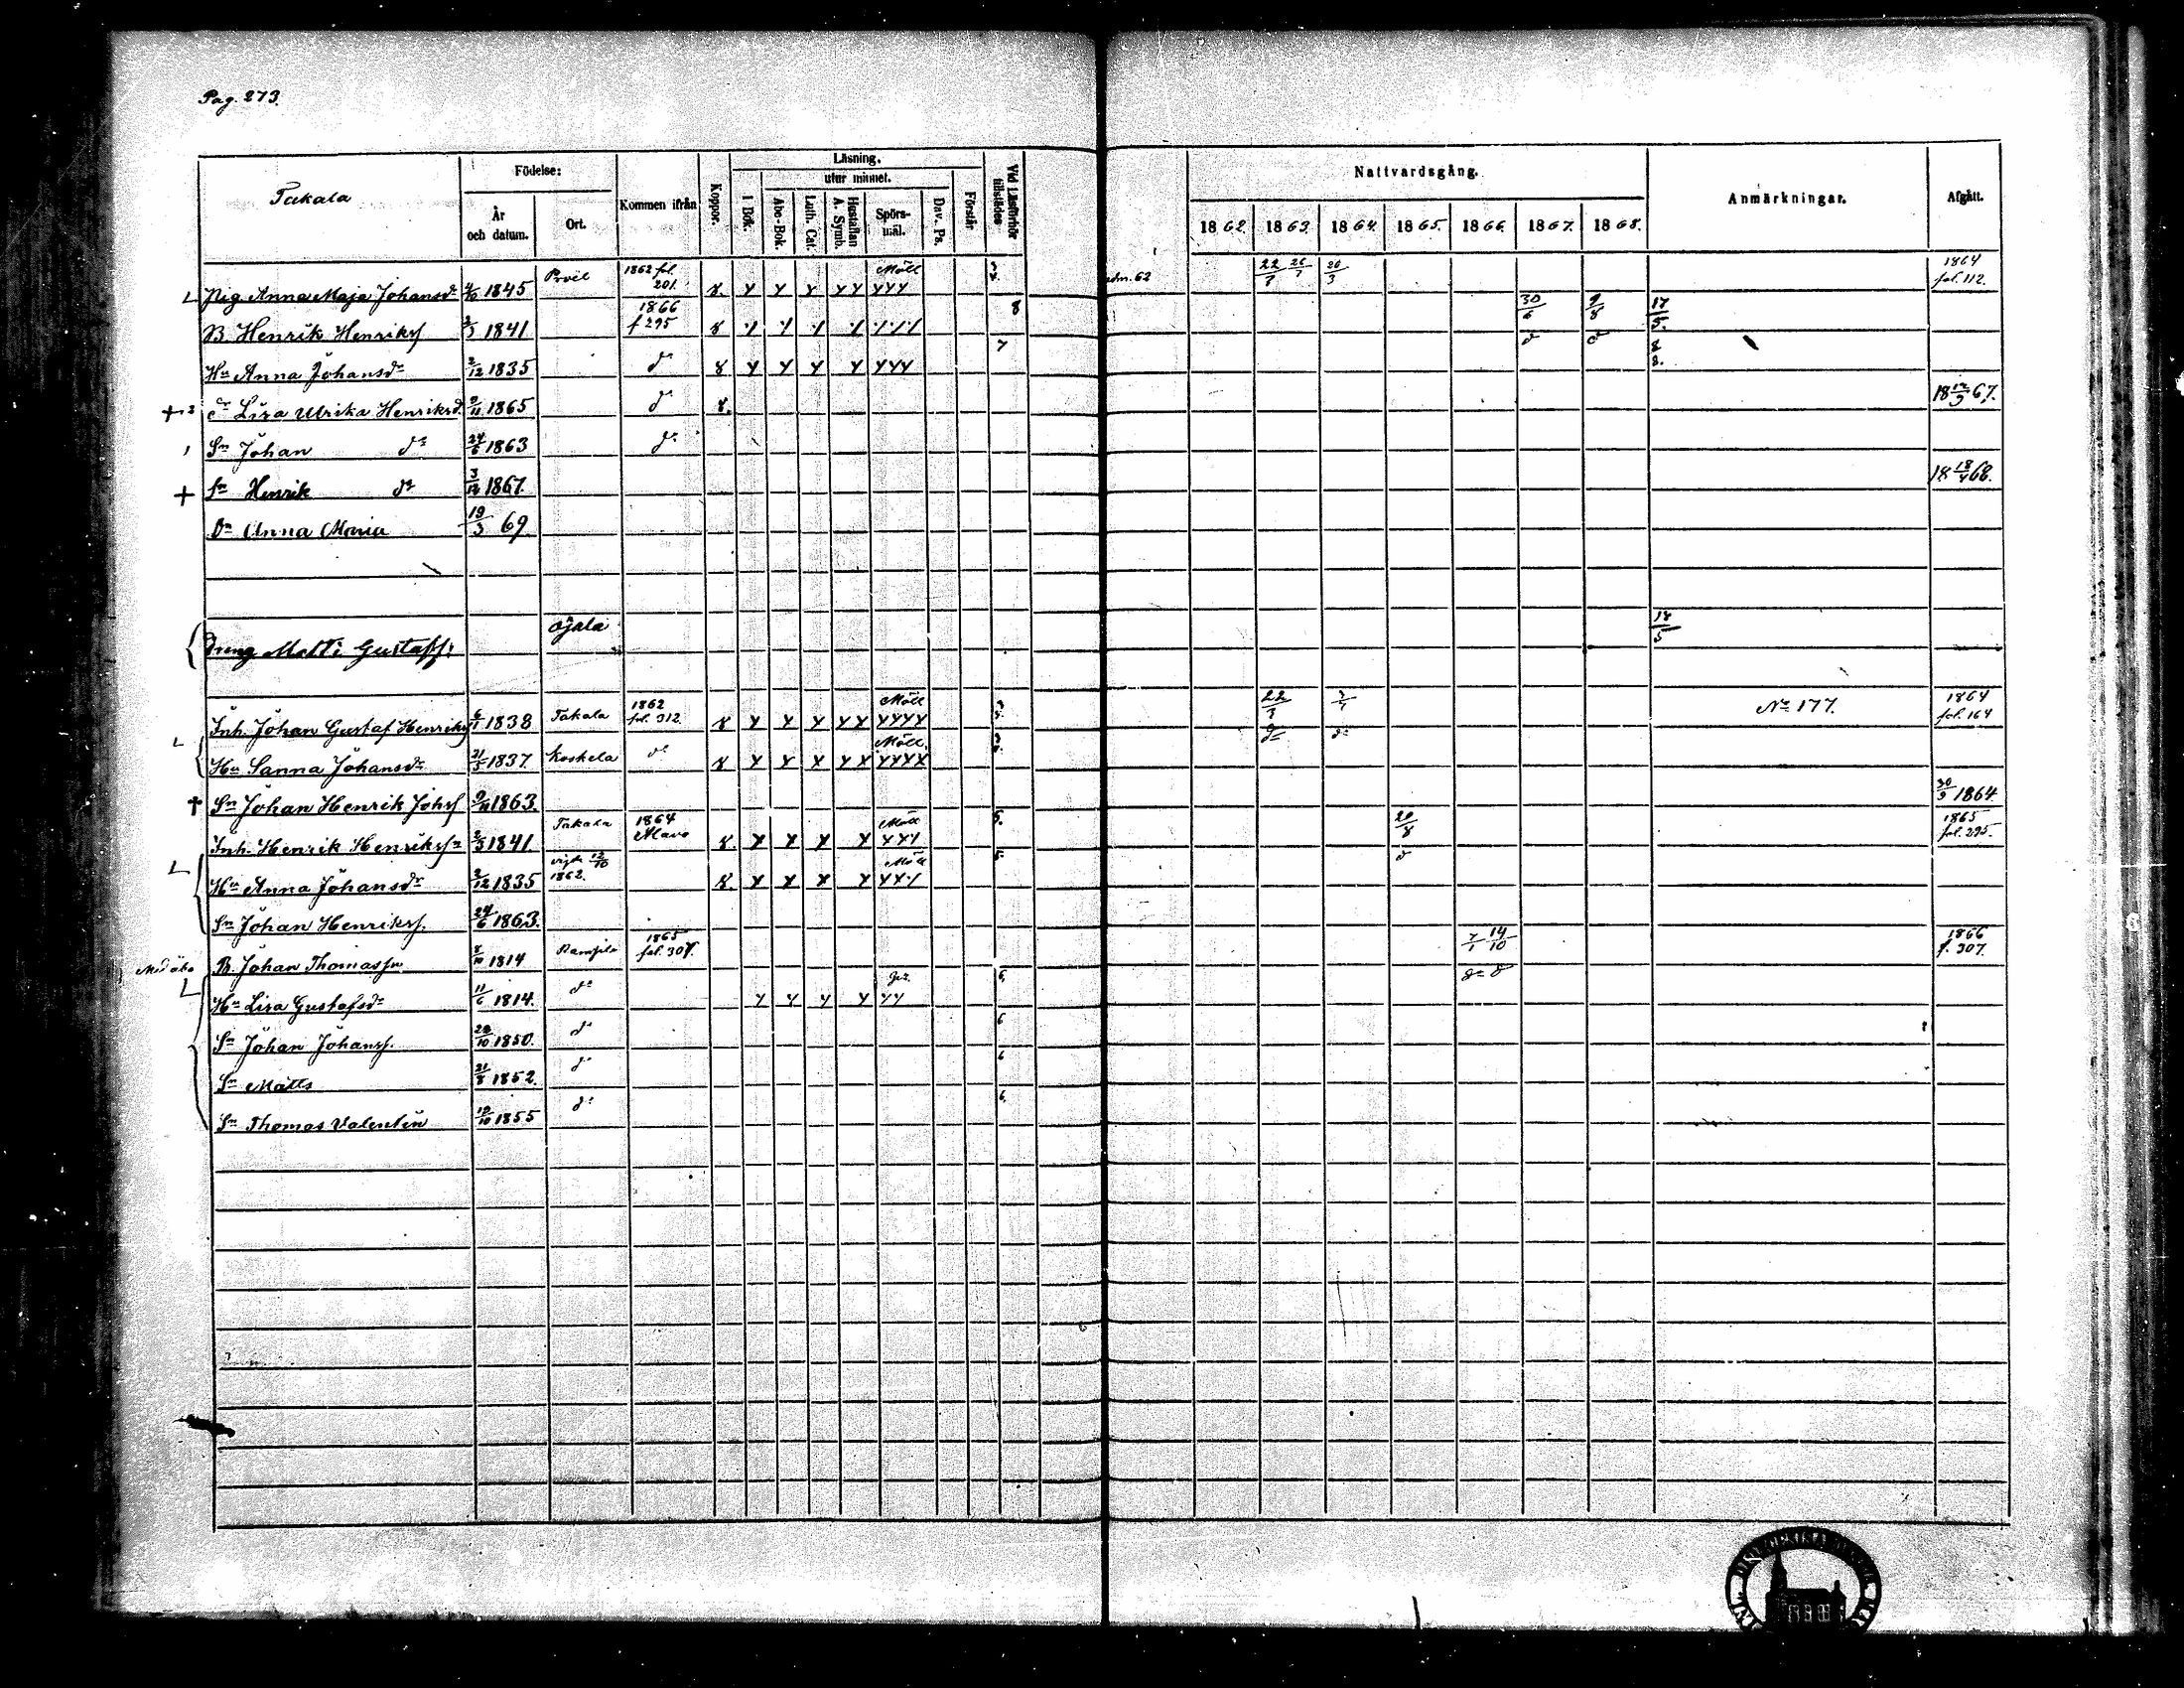 Pag. 273.
Takala
Födelse:
År och datum.
Ort.
Kommen ifrån
Koppor.
Läsning.
I Bok.
utur minnet.
Abc-Bok.
Luth. Cat.
Hustaflan A. Symb.
Spörs-mål.
Dav. Ps.
Förstår
Vid Läsförhör tillstädes
Nattvardsgång.
1862. 1863. 1864. 1865. 1866. 1867. 1868.
Anmärkningar.
Afgått.
Pig. Anna Maja Johansdr 4/10 1845 1862 fol. 201. Möll adm. 62 20/3 1864 fol. 112.
B. Henrik Henrikss 2/3 1841 1866 f 295 8 30/6 9/8 17/5.
Hu Anna Johansdr 2/12 1835 do 7
Lisa Ulrika Henriksd. 9/11 1865 do 18 12/9 67.
Sn Johan do 24/6 1863 do
Sn Henrik do 3/12 1867. 18 18/4 68.
Dr Anna Maria 19/3 69
Dreng Matti Gustafss: Ojala 18/5
Inh. Johan Gustaf Henrikss 6/1 1838 Takala 1862 fol. 312. Möll 22/3 No 177. 1864 fol. 164
Hu Sanna Johansdr 21/5 1837. Koskela do Möll.
Sn Johan Henrik Johss 1863 30/9 1864.
Inh. Henrik Henrikssn 2/3 1841. Takala 1864 Alavo Möll 5. 20/8 1865 fol. 295.
Hu Anna Johansdr 2/12 1835 vigde 12/10 1862. Möll 5.
Sn Johan Henrikss. 24/6 1863.
B. Johan Thomassn 8/10 1814 1865 fol. 307. 7/1 14/10 1866 f. 307.
Hu Lisa Gustafsdr 11/6 1814. do 6.
Sn Johan Johanss. 20/10 1850. do 6
Sn Matts 21/8 1852. do 6
Sn Thomas Valentin 18/10 1855 do 6.